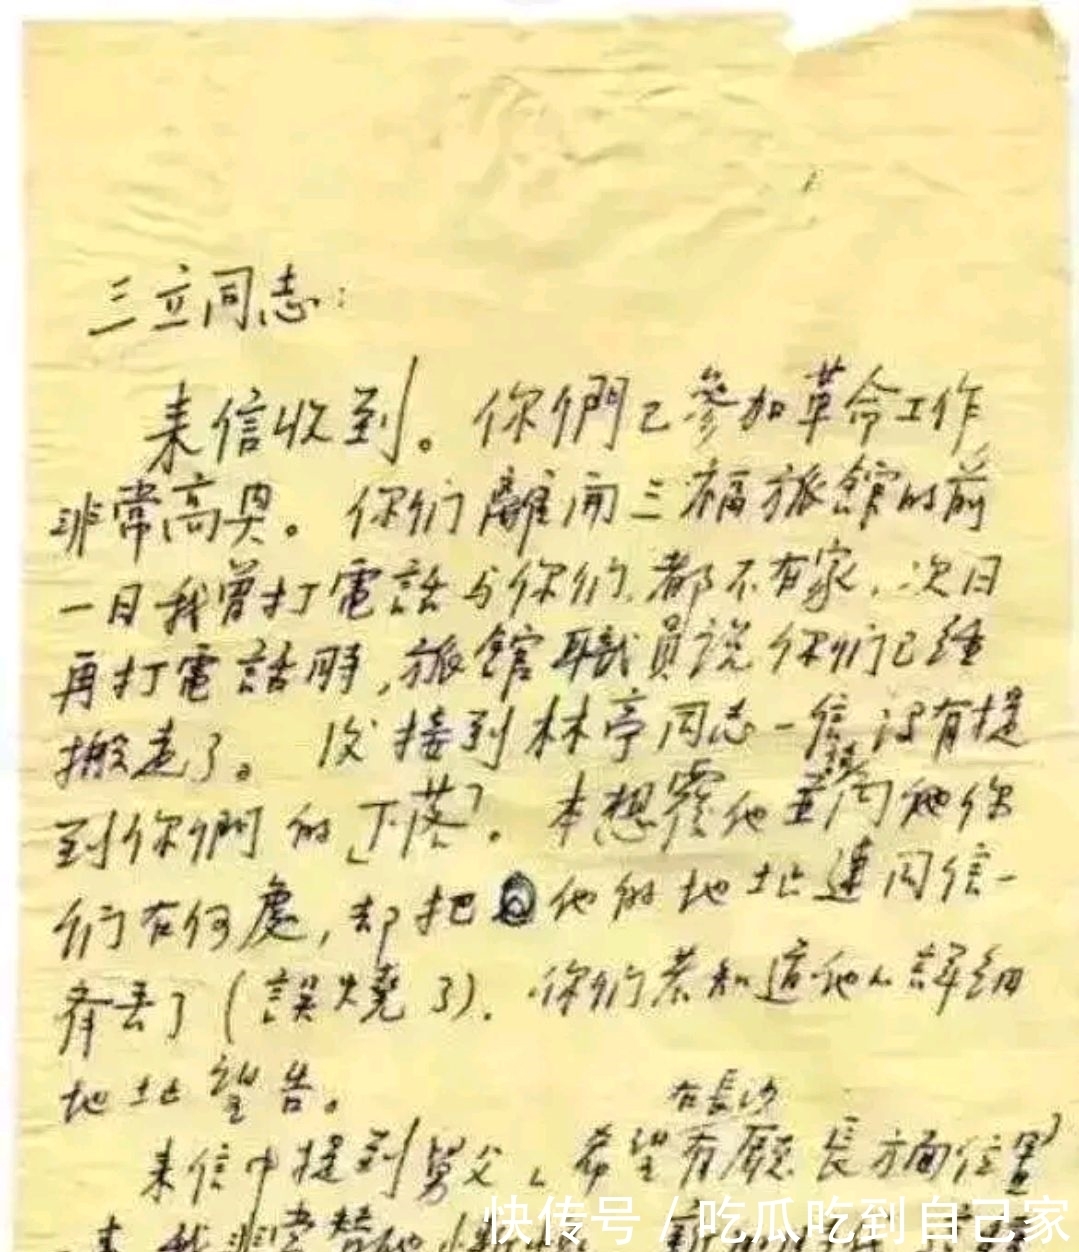 三立同志：
来信收到。你們已參加革命工作
非常高興。你们離開三福旅館的前
一日我曾打電話与你们，都不在家，次日
再打電話時，旅館職員说你们已经
搬走了。后接到林亭同志一信没有提
到你們的「下落」。本想覆他並询他你
们在何處，却把他的地址連同信一
齊丢了（誤燒了）。你们若知道他的詳细
地址望告。
来信中提到舅父「希望在長沙有厥長方面位置」
快传号 / 吃瓜吃到自己家